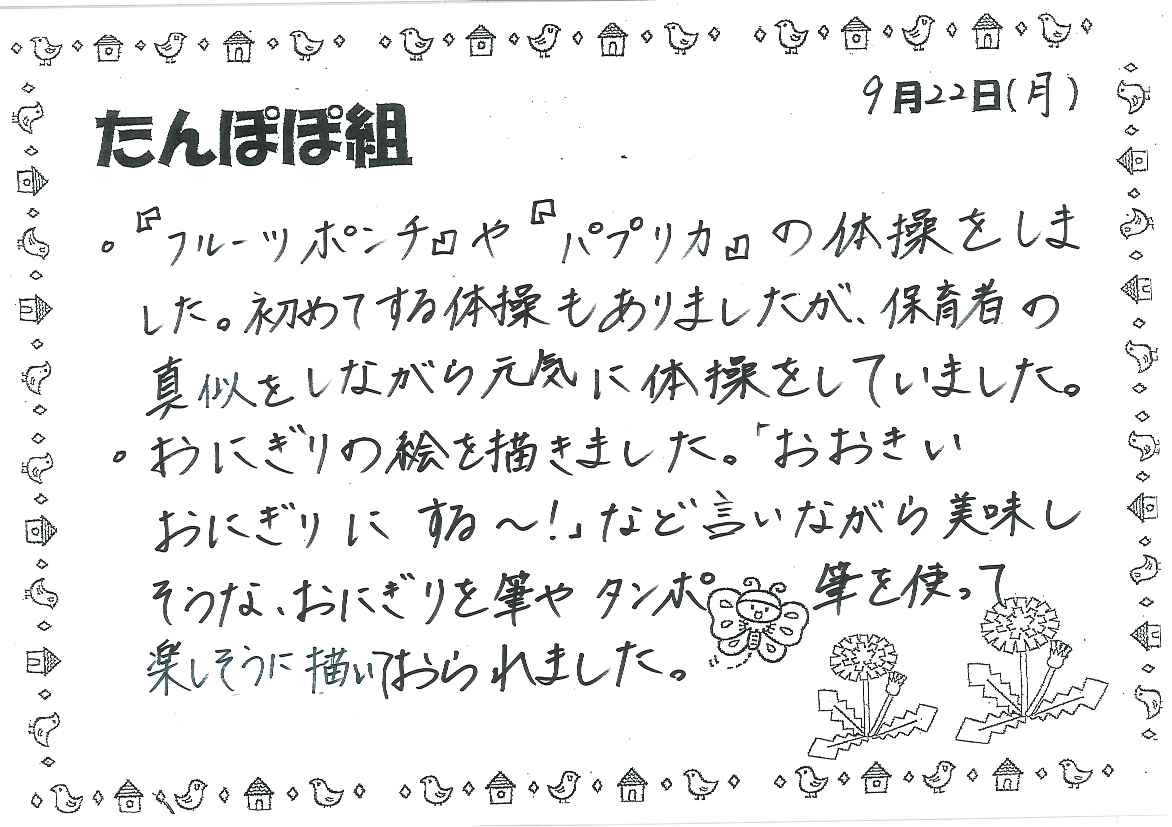 9月22日(月)
たんぽぽ組
。『フルーツポンチ』や『パプリカ』の体操をしま
した。初めてする体操もありましたが、保育者の
真似をしながら元気に体操をしていました。
。おにぎりの絵を描きました。「おおきい
おにぎりにする～!」など言いながら美味し
そうな、おにぎりを筆やタンポ 筆を使って
楽しそうに描いておられました。